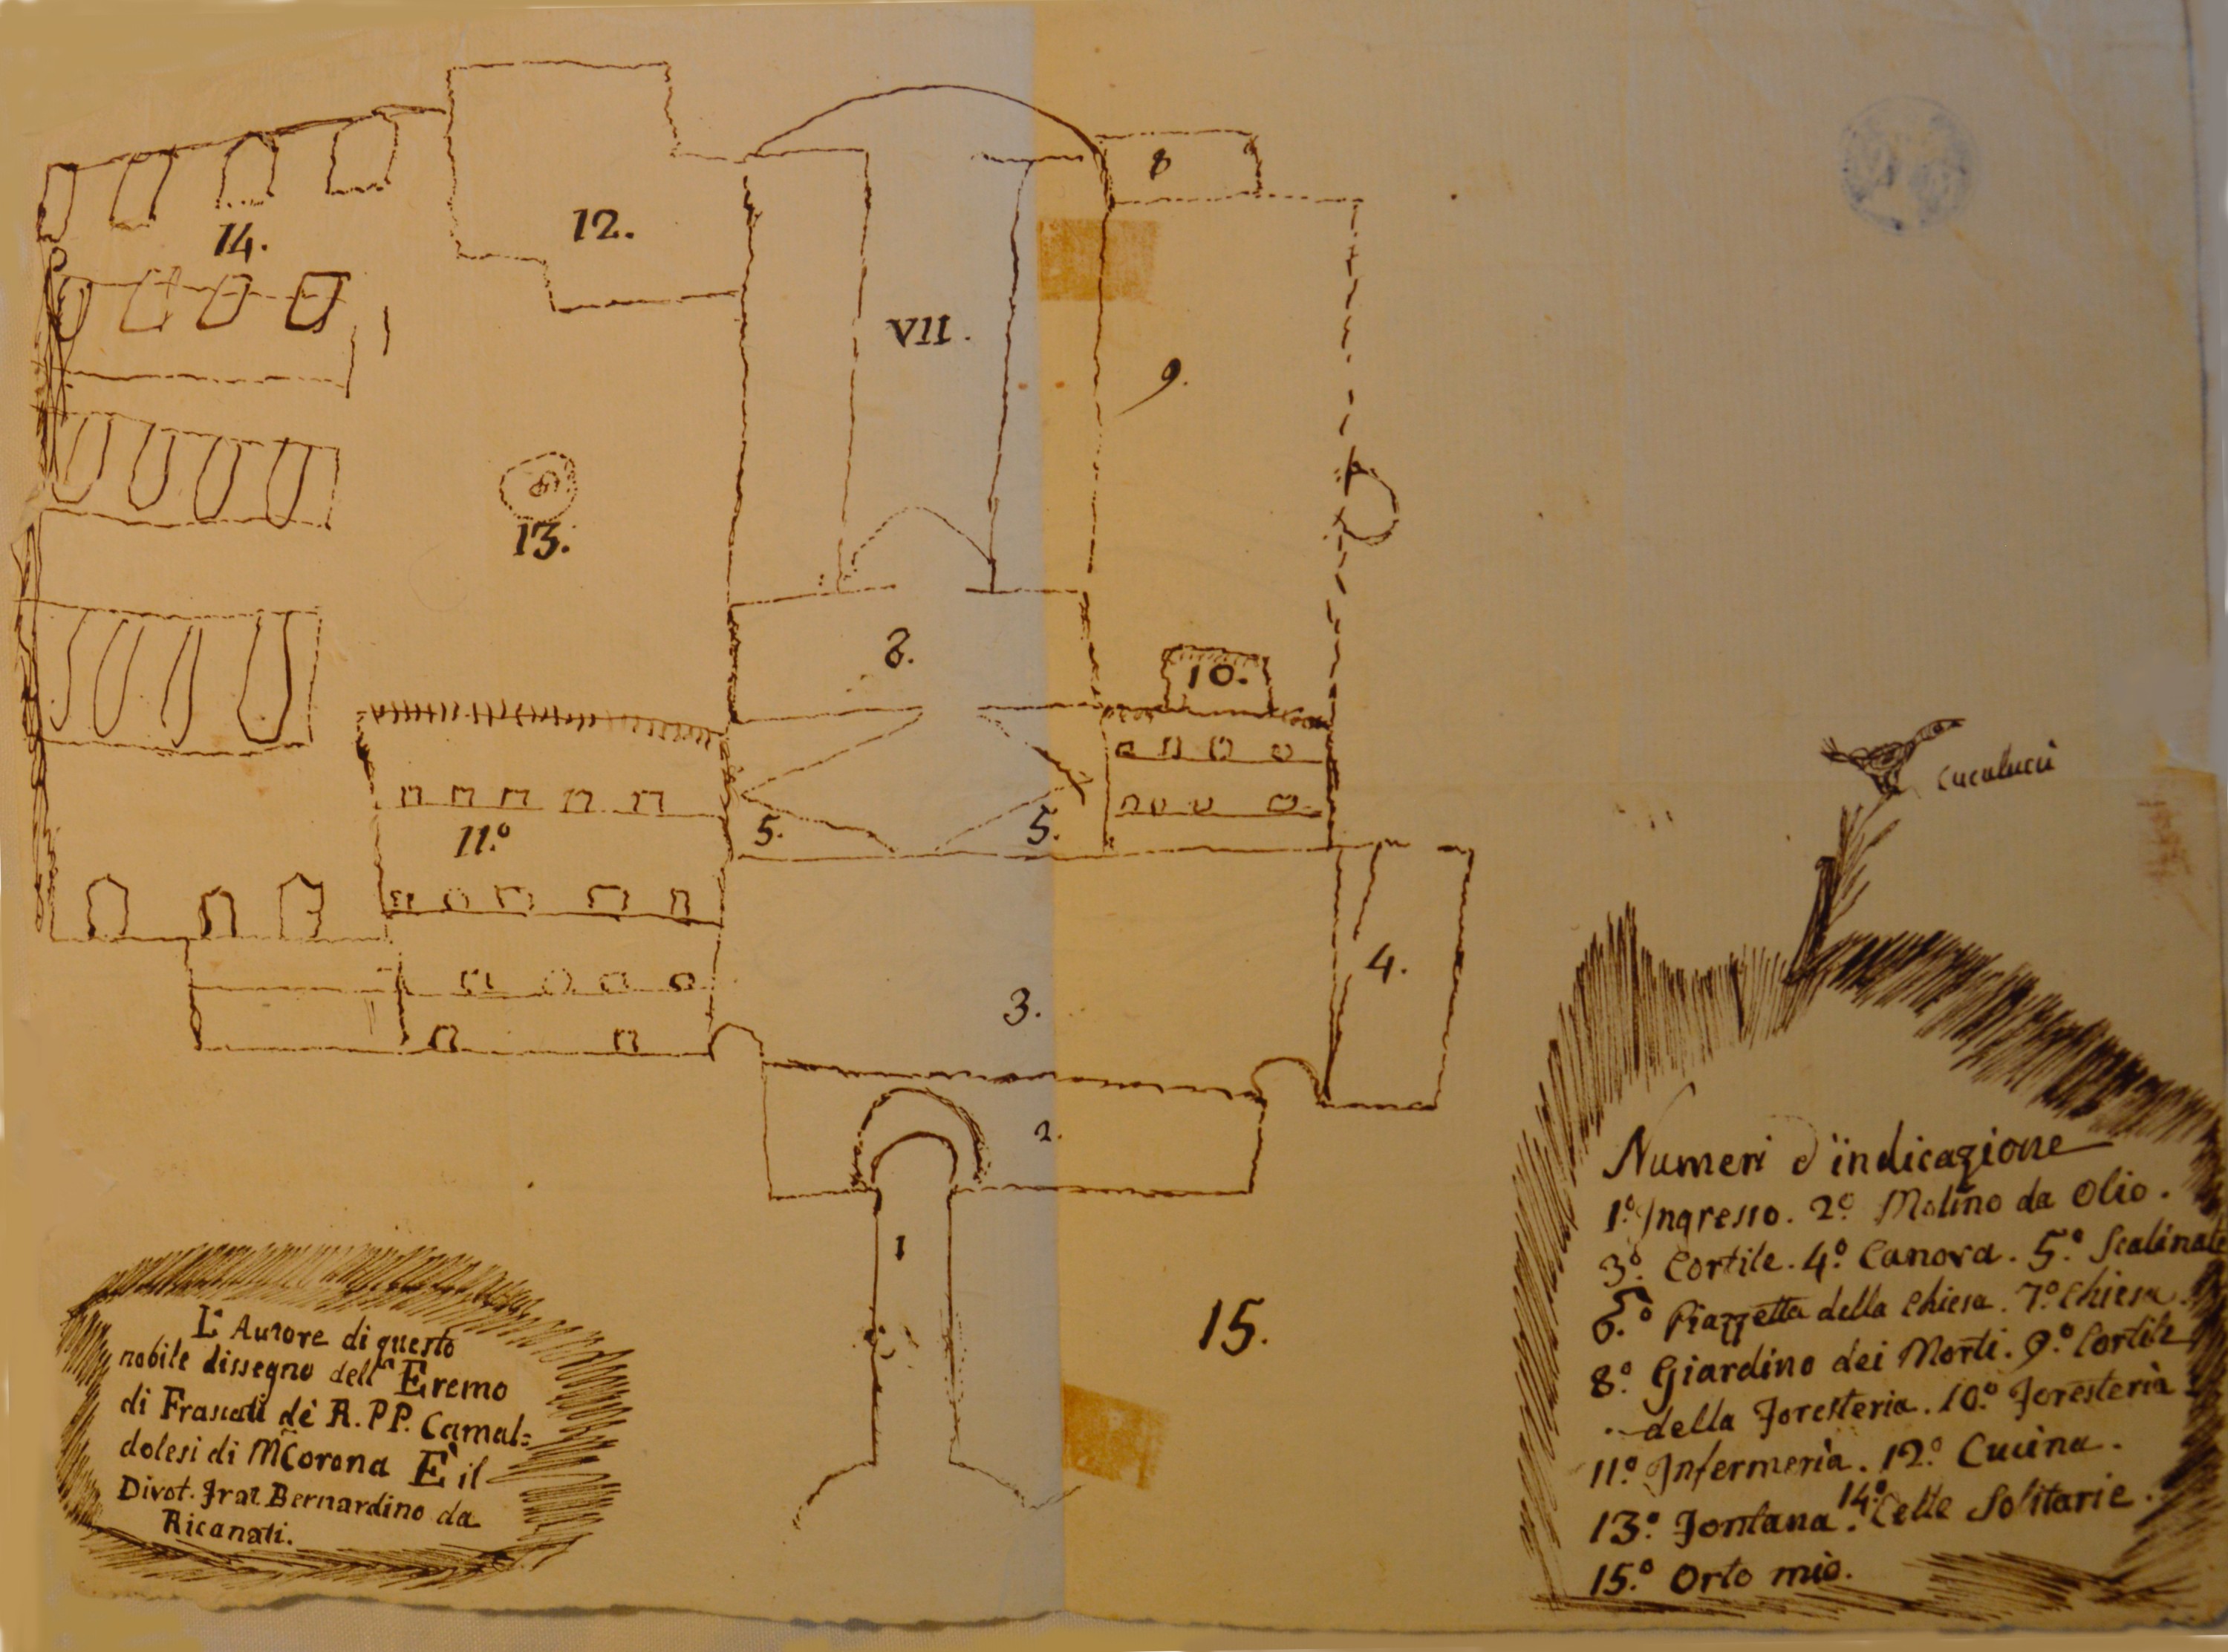 14.
12.
8
VII.
9.
13.
6.
10.
5.
5.
11º
4.
3.
2.
1
15.
cuculucù
L'Autore di questo
nobile dissegno dell'Eremo
di Frascati dè R. PP. Camal=
dolesi di M Corona E' il
Divot. Frat Bernardino da
Ricanati.
Numeri d'indicazione
1º Ingresso. 2º Molino da Olio.
3º Cortile. 4º Canova. 5º Scalinate
6.º Piazzetta della Chiesa. 7º Chiesa.
8º Giardino dei Morti. 9º Cortile
della Foresteria. 10º Foresteria
11º Infermeria. 12º Cucina.
13º Fontana. 14º Celle Solitarie.
15º Orto mio.